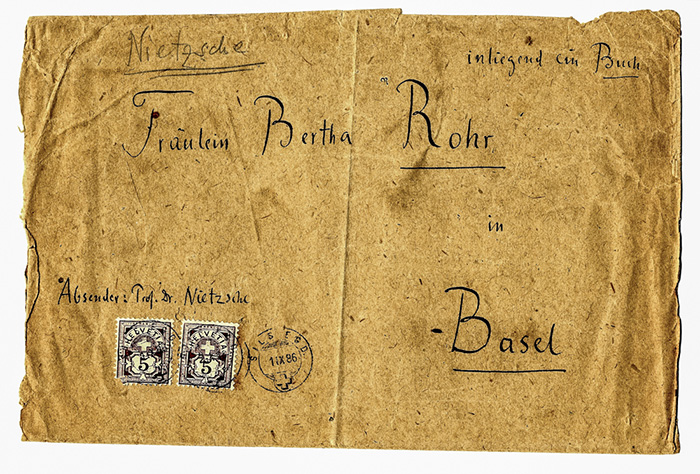 Nietzsche
inliegend ein Buch
Fräulein Bertha Rohr
in
Basel
Absender: Prof. Dr. Nietzsche
HELVETIA HELVETIA
5 5
SILS
1 IX 86